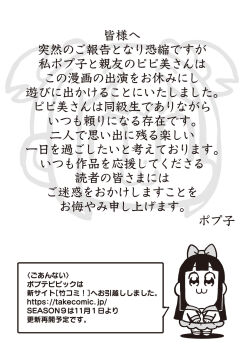 皆様へ
突然のご報告となり恐縮ですが
私ポプ子と親友のピピ美さんは
この漫画の出演をお休みにし
遊びに出かけることにいたしました。
ピピ美さんは同級生でありながら
いつも頼りになる存在です。
二人で思い出に残る楽しい
一日を過ごしたいと考えております。
いつも作品を応援してくださる
読者の皆さまには
ご迷惑をおかけしますことを
お悔やみ申し上げます。
ポプ子
〈ごあんない〉
ポプテピピックは
新サイト[竹コミ！]へお引越ししました。
https://takecomic.jp/
SEASON９は11月１日より
更新再開予定です．